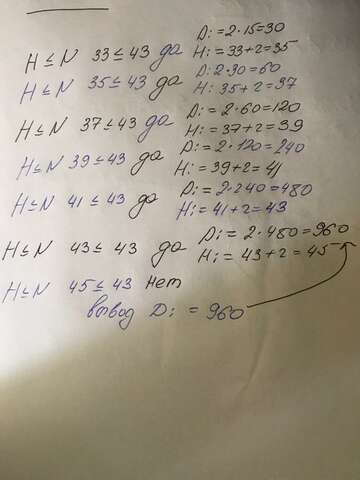 H ≤ N 33 ≤ 43 да Di = 2·15 = 30
Hi = 33+2 = 35
H ≤ N 35 ≤ 43 да Di = 2·30 = 60
Hi = 35+2 = 37
H ≤ N 37 ≤ 43 да Di = 2·60 = 120
Hi = 37+2 = 39
H ≤ N 39 ≤ 43 да Di = 2·120 = 240
Hi = 39+2 = 41
H ≤ N 41 ≤ 43 да Di = 2·240 = 480
Hi = 41+2 = 43
H ≤ N 43 ≤ 43 да Di = 2·480 = 960
Hi = 43+2 = 45
H ≤ N 45 ≤ 43 Нет
вывод Di = 960